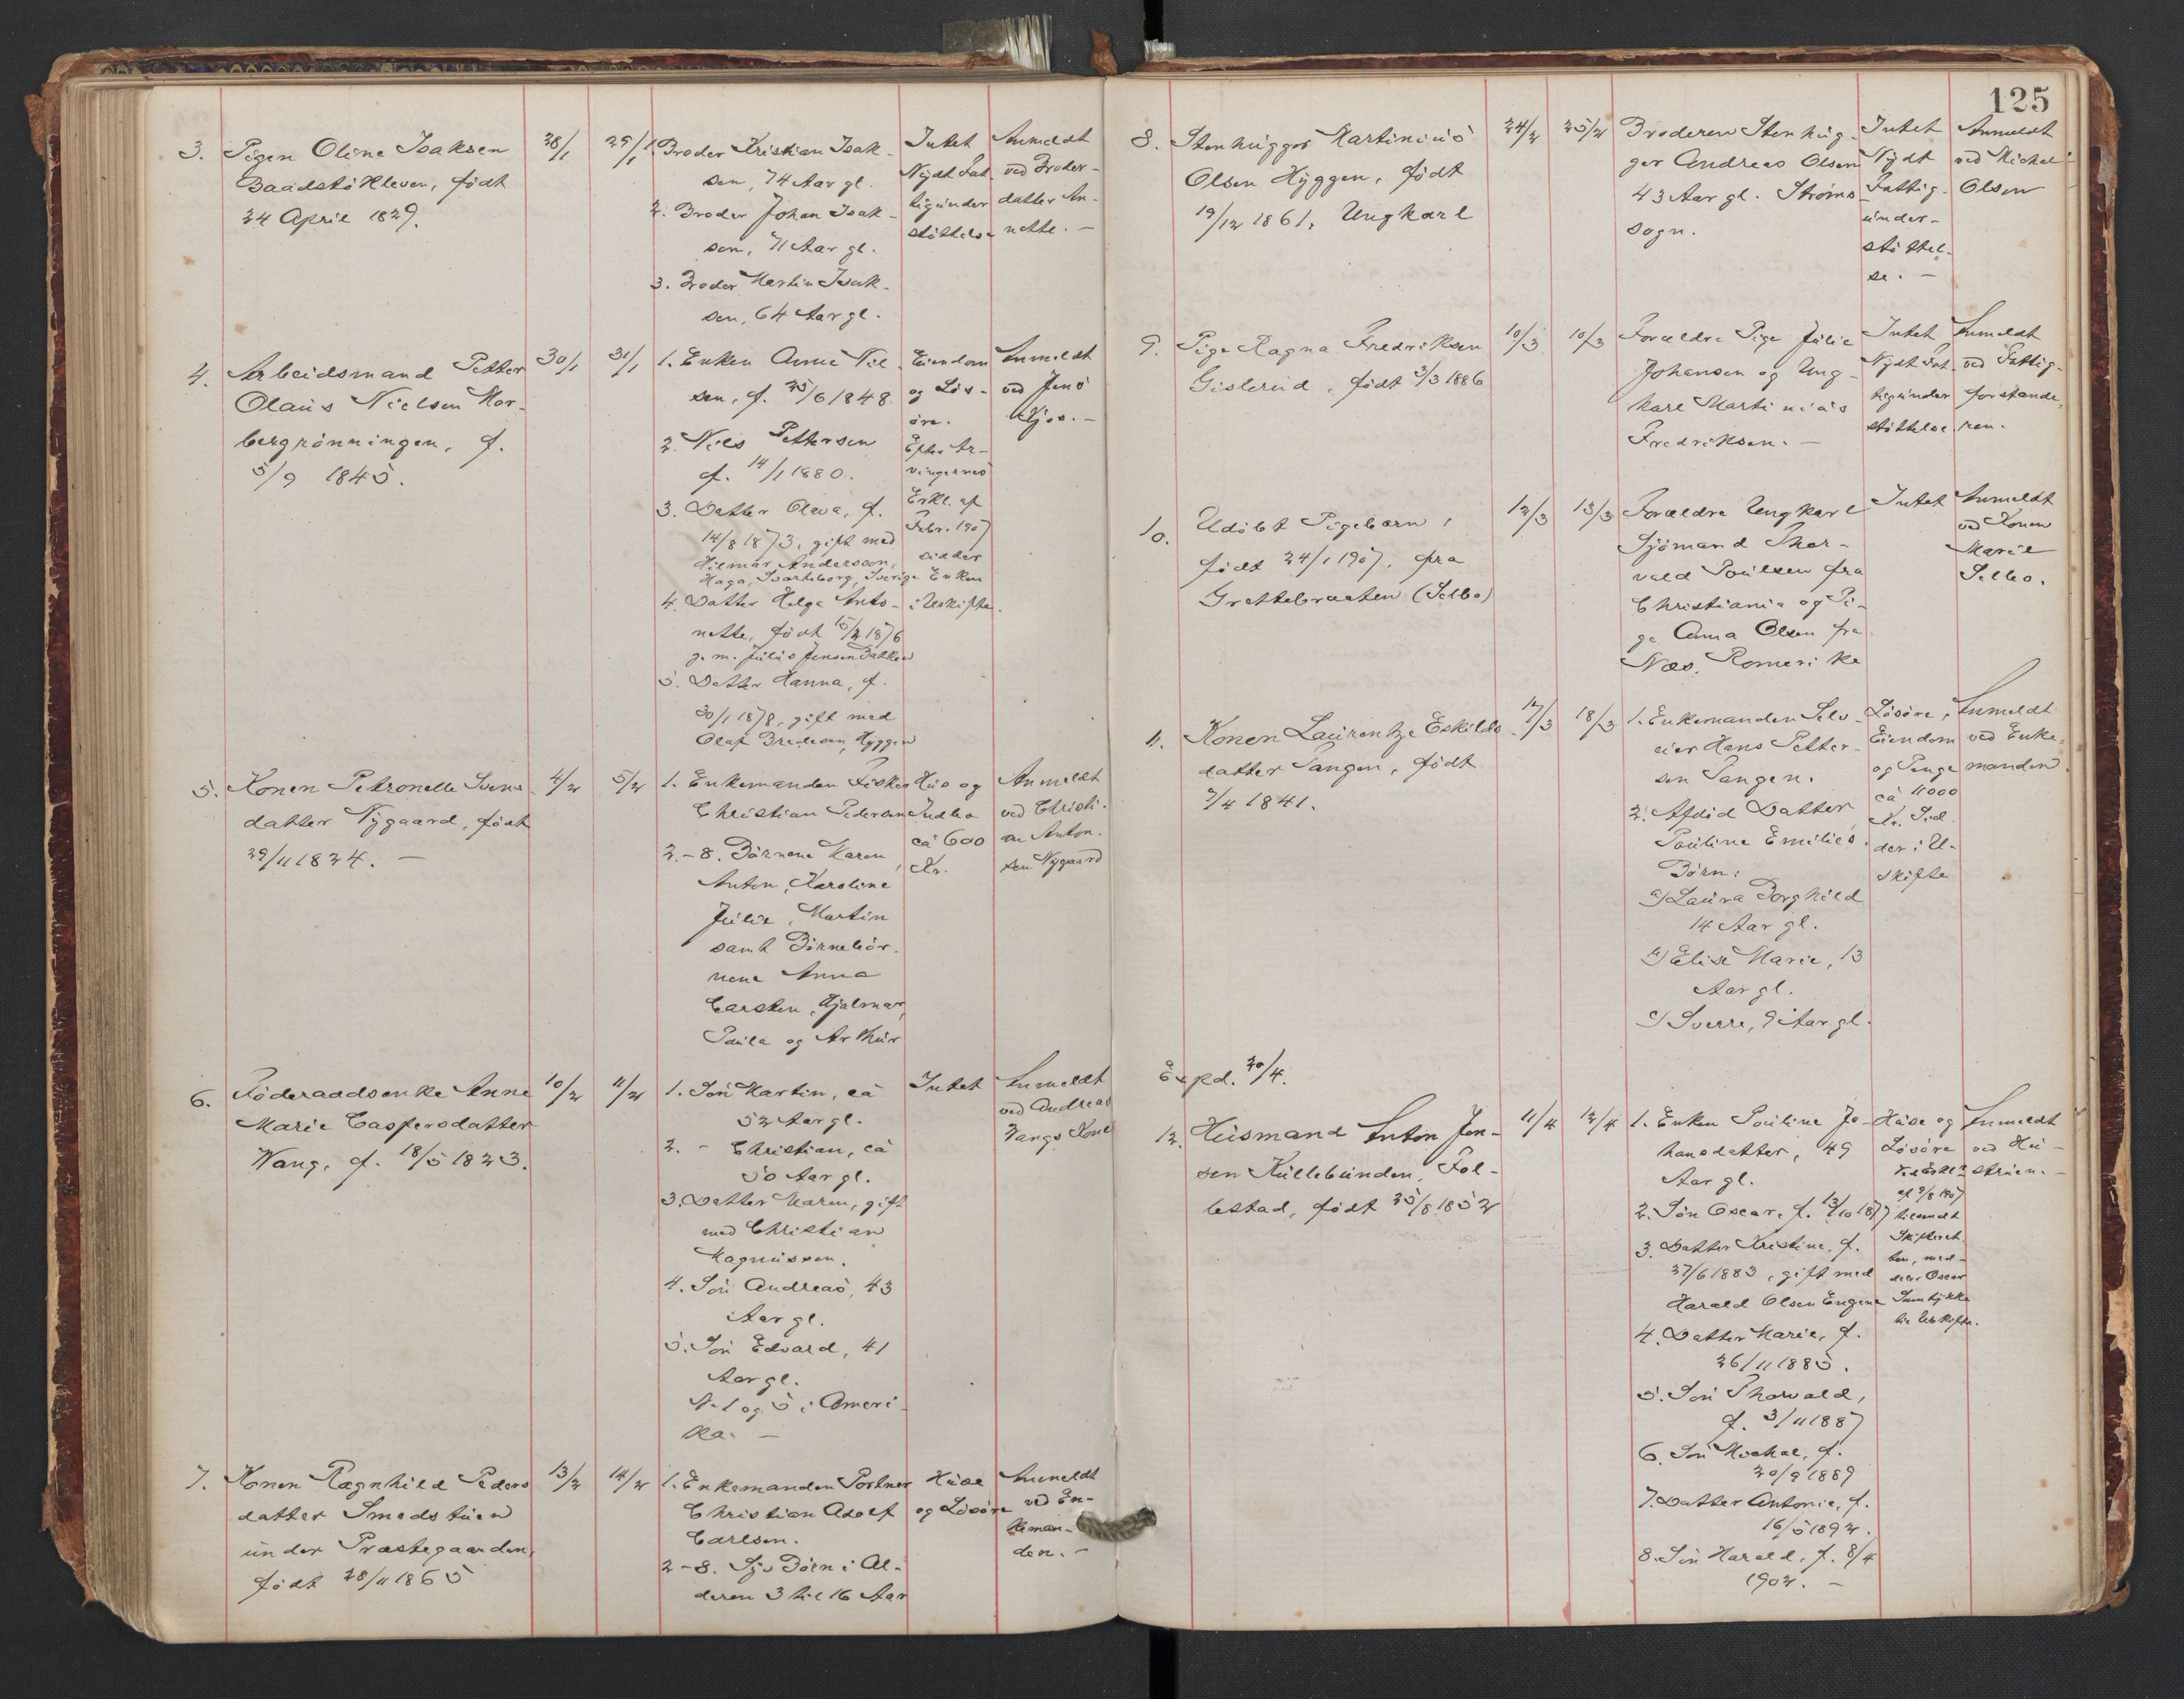 125
3. Pigen Oline Isaksen
Baadstökleven, født
24 April 1829.
28/1
29/1
1. Broder Kristian Isak-
sen, 74 Aar gl.
2. Broder Johan Isak-
sen, 71 Aar gl.
3. Broder Martin Isak-
sen, 64 Aar gl.
Intet
Nydt Fat-
tigunder
støttelse
Anmeldt
ved Broder-
datter An-
nette. -
4. Arbeidsmand Petter
Olaus Nielsen Mor-
bergrönningen, f.
5/9 1845.
30/1
31/1
1. Enken Anne Niel-
sen, f. 25/6 1848
2. Niels Pettersen
f. 14/1 1880.
3. Datter Olava, f.
14/8 1873, gift med
Hilmar Andersson,
Haga, Svarteborg, Sverige
4. Datter Helga Anto-
nette, født 15/2 1876
g. m. Julius Jensen Bakken
5. Datter Hanna, f.
30/1 1878, gift med
Olaf Bredesen, Hyggen
Eiendom
og Løs-
øre.
Efter Ar-
vingernes
Erkl. af
Febr. 1907
sidder
Enken
i Uskifte.
Anmeldt
ved Jens
Kjos. -
5. Konen Petronelle Svens-
datter Nygaard, født
29/11 1824. -
4/2
5/2
1. Enkemanden Fisker
Christian Pedersen
2.-8. Börnene Karen,
Anton, Karoline
Julie, Martin
samt Börnebör-
nene Anna
Carsten, Hjalmar,
Paula og Arthur
Hus og
Indbo
ca 600
Kr.
Anmeldt
ved Christi-
an Anton-
sen Nygaard
6. Föderaadsenke Anne
Marie Caspersdatter
Wang, f. 18/5 1823.
10/2
11/2
1. Sön Martin, ca
52 Aar gl.
2. - Christian, ca
50 Aar gl.
3. Datter Maren, gift
med Christian
Magnussen.
4. Sön Andreas, 43
Aar gl.
5. Sön Edvard, 41
Aar gl.
N. 1 og 5 i Ameri-
ka. -
Intet
Anmeldt
ved Andreas
Wangs Kone
7. Konen Ragnhild Peders
datter Smedstuen
under Præstegaarden,
født 28/11 1865
13/2
14/2
1. Enkemanden Portner
Christian Adolf
Carlsen.
2-8. Syv Börn i Al-
deren 3 til 16 Aar
Huse
og Lösöre
Anmeldt
ved En-
keman-
den. -
8. Stenhugger Martinius
Olsen Hyggen, født
19/12 1861, Ungkarl
24/2
25/2
Broderen Stenhug-
ger Andreas Olsen
43 Aar gl. Ströms-
sogn.
Intet
Nydt
Fattig-
under-
støttel-
se. -
Anmeldt
ved Michel
Olsen
9. Pige Ragna Fredriksen
Gislerud, født 3/3 1886
10/3
10/3
Forældre Pige Julie
Johansen og Ung-
karl Martinius
Fredriksen. -
Intet
Nydt Fat-
tigunder
støttelse.
Anmeldt
ved Fattig-
forstande-
ren.
10. Udöbt Pigebarn,
født 24/1 1907, fra
Grøttebraaten (Selbo)
12/3
13/3
Forældre Ungkarl
Sjömand Thor-
vald Poulsen fra
Christiania og Pi-
ge Anna Olsen fra
Næs, Romerike
Intet
Anmeldt
ved Konen
Marie
Selbo.
11. Konen Laurentze Eskilds-
datter Tangen, født
7/4 1841.
17/3
18/3
1. Enkemanden Selv-
eier Hans Petter-
sen Tangen.
2. Afdöd Datter
Pauline Emilies
Börn:
a) Laura Borghild
14 Aar gl.
b) Elise Marie, 13
Aar gl.
c) Sverre, 9 Aar gl.
Lösöre,
Eiendom
og Penge
ca 11000
Kr. Sid-
der i U-
skifte
Anmeldt
ved Enke-
manden.
Expd. 20/4.
12. Husmand Anton Jen-
sen Kullebunden, Fol-
lestad, født 25/8 1852
11/4
12/4
1. Enken Pauline Jo-
hansdatter, 49
Aar gl.
2. Sön Oscar, f. 13/10 1877
3. Datter Kristine, f.
27/6 1883, gift med
Harald Olsen Engene
4. Datter Marie, f.
26/11 1885.
5. Sön Thorvald,
f. 3/11 1887
6. Sön Michal, f.
20/9 1889
7. Datter Antonie, f.
16/5 1892.
8. Sön Harald, f. 8/4
1902. -
Huse og
Lösöre
Ved Erkl.
af 9/8 1907
tilsendt
Skifteret-
ten, med-
deler Oscar
Samtykke
til Uskifte.
Anmeldt
ved Hu-
struen. -